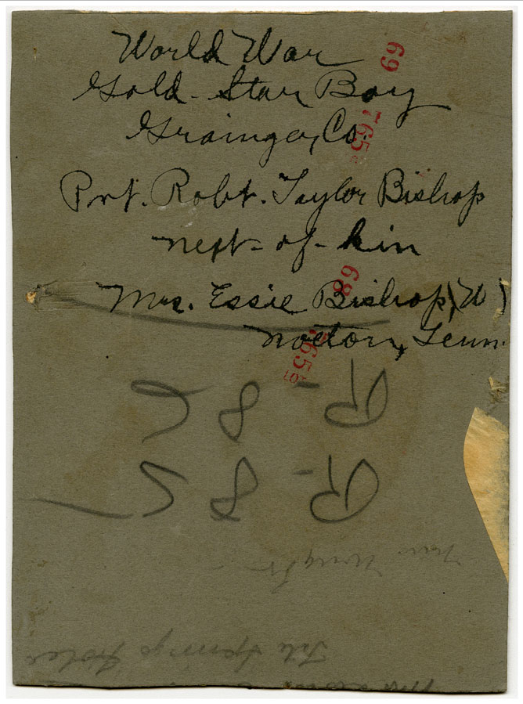 World War
Gold-Star Boy
Grainger, Co.
Pvt. Robt. Taylor Bishop
next-of-kin
Mrs. Essie Bishop (W)
Noeton, Tenn.
69
765
68
R-85
R-85